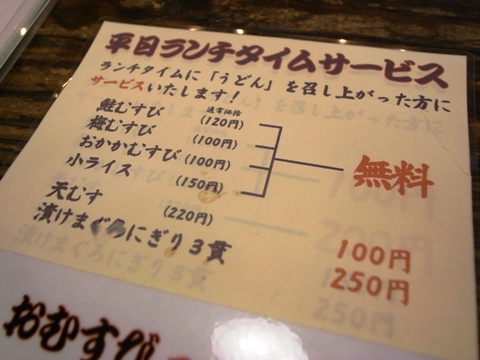 平日ランチタイムサービス
ランチタイムに「うどん」を召し上がった方に
サービスいたします！
通常価格
鮭むすび (120円)
梅むすび (100円)
おかかむすび (100円)
小ライス (150円)
無料
天むす (220円) 100円
漬けまぐろにぎり３貫 250円
おむすび